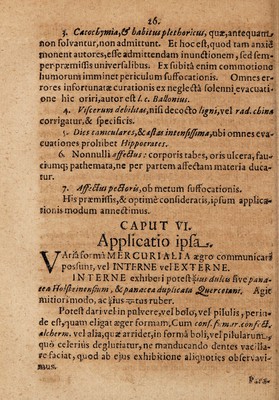 26.
3. Cacochymia, & habitus plethoricus, quæ, antequam
non solvantur, non admittunt. Et hoc est, quod tam anxiè
monent autores, esse admittendam inunctionem, sed sem-
per præmissis universalibus. Ex subitâ enim commotione
humorum imminet periculum suffocationis. Omnes er-
rores infortunatæ curationis ex neglectâ solenni evacuati-
one hic oriri, autor est l. c. Ballonius.
4. Viscerum debilitas, nisi decocto ligni, vel rad. china
corrigatur, & specificis.
5. Dies caniculares, & æstas intensissima, ubi omnes eva-
cuationes prohibet Hippocrates.
6. Nonnulli affectus: corporis tabes, oris ulcera, fau-
ciumq; pathemata, ne per partem affectam materia duca-
tur.
7. Affectus pectoris, ob metum suffocationis.
His præmissis, & optimè consideratis, ipsum applica-
tionis modum annectimus.
CAPUT VI.
Applicatio ipsa.
VAriâ formâ MERCURIALIA ægro communicari
possunt, vel INTERNE vel EXTERNE.
INTERNE exhiberi potest ☿ius dulcis sive pana-
cea Holsteinensium, & panacea duplicata Quercetani. Agit
mitiori modo, ac ☿ius ptus ruber.
Potest dari vel in pulvere, vel bolo, vel pilulis, perin-
de est, quam eligat æger formam, Cum conf.
alcherm. vel aliâ, quæ arridet, in formâ boli, vel pilularum,
quò celeriùs deglutiatur, ne manducando dentes vacilla-
re faciat, quod ab ejus exhibitione aliquoties observavi-
mus.
Para-